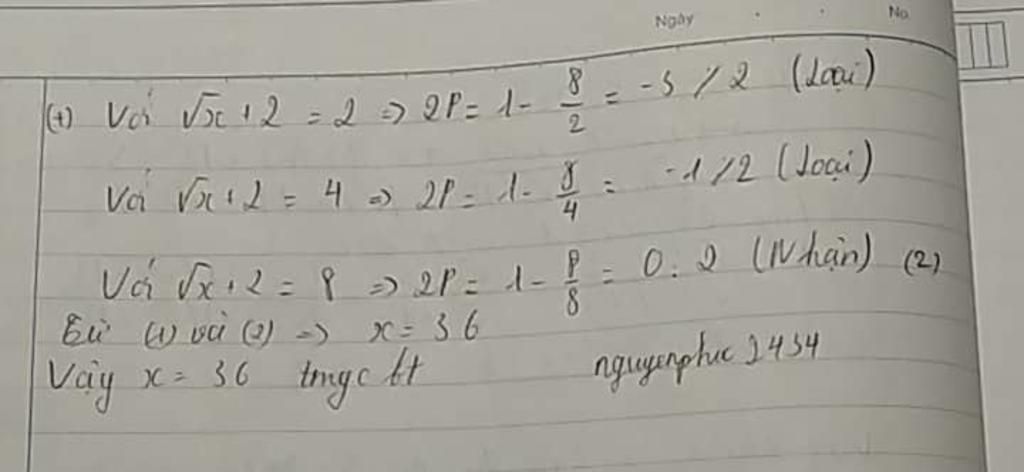 Ngày No.
(+) Với √x + 2 = 2 => 2P = 1 - 8/2 = -3 ⋮̸ 2 (Loại)
Với √x + 2 = 4 => 2P = 1 - 8/4 = -1 ⋮̸ 2 (Loại)
Với √x + 2 = 8 => 2P = 1 - 8/8 = 0 ⋮ 2 (Nhận) (2)
Từ (1) và (2) => x = 36
Vậy x = 36 tmyc bt nguyenphuc2434